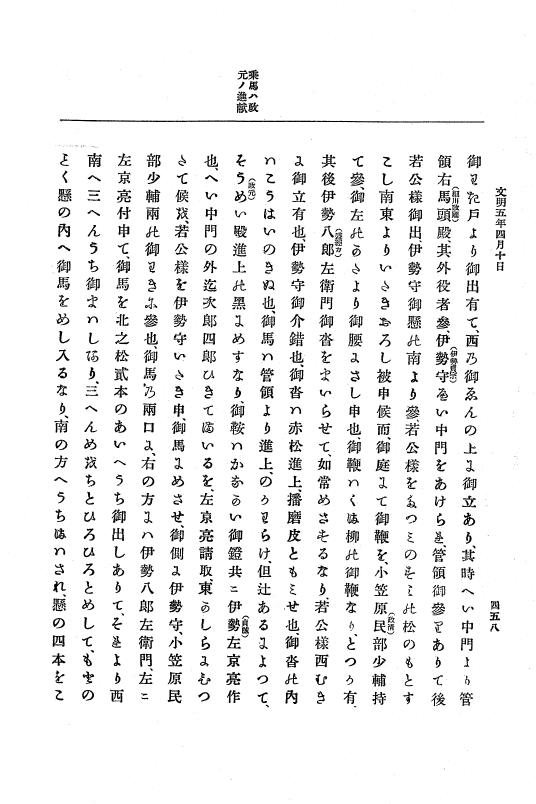 文明五年四月十日
四五八
乗馬ハ政
元ノ進献
御わきた戸より御出有て、西乃御ゑんの上に御立あり、其時へい中門より管
領右馬頭殿、其外役者參、伊勢守へい中門をあけられ管領御參りありて後
若公樣御出伊勢守御懸の南より參、若公樣をたつミのすミの松のもとす
こし南東よりいたきおろし被申候而、御庭にて御鞭を、小笠原民部少輔持
て參、御左のかたより御腰にさし申也、御鞭ハくま柳の御鞭なり、とつか有、
其後伊勢八郎左衞門御沓をまいらせて、如常めさするなり、若公樣西むき
に御立有也、伊勢守御介錯也、御沓ハ赤松進上、播磨皮ともミせ也、御沓の內
ハこうはいのきぬ也、御馬ハ管領より進上、のかわらけ、但辻あるによつて、
そうめい殿進上の黑にめすなり、御鞍ハかなかい御鐙共ニ伊勢左京亮作
也、へい中門の外迄次郎四郎ひきてまいるを、左京亮請取、東かしらにむつ
きて候を、若公樣を伊勢守いたき申、御馬にめさせ、御側に伊勢守、小笠原民
部少輔兩の御わきに參也、御馬乃兩口に、右の方にハ伊勢八郎左衞門、左ニ
左京亮付申て、御馬を北之松貳本のあいへうち御出しありて、それより西
南へ三へんうち御まハしなり、三へんめをちとひろひろとめして、もとの
ことく懸の內へ御馬をめし入るなり、南の方へうちまハされ、懸の四本をこ
（細川政國）
（伊勢貞宗）
（政清）
（政元）
（貞誠）